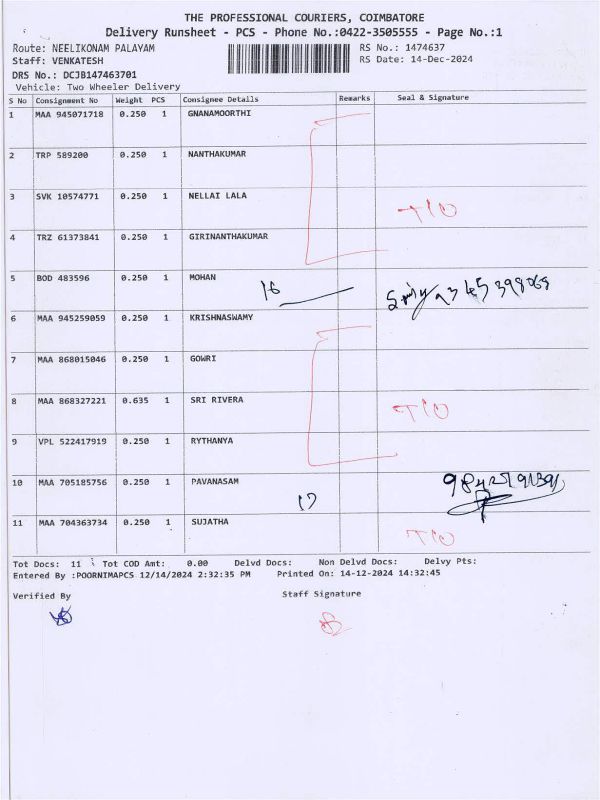 THE PROFESSIONAL COURIERS, COIMBATORE
Delivery Runsheet - PCS - Phone No.:0422-3505555 - Page No.:1
Route: NEELIKONAM PALAYAM RS No.: 1474637
Staff: VENKATESH RS Date: 14-Dec-2024
DRS No.: DCJB147463701
Vehicle: Two Wheeler Delivery
S No Consignment No Weight PCS Consignee Details Remarks Seal & Signature
1 MAA 945071718 0.250 1 GNANAMOORTHI
2 TRP 589200 0.250 1 NANTHAKUMAR
3 SVK 10574771 0.250 1 NELLAI LALA T/O
4 TRZ 61373841 0.250 1 GIRINANTHAKUMAR
5 BOD 483596 0.250 1 MOHAN 16
6 MAA 945259059 0.250 1 KRISHNASWAMY
7 MAA 868015046 0.250 1 GOWRI
8 MAA 868327221 0.635 1 SRI RIVERA T/O
9 VPL 522417919 0.250 1 RYTHANYA
10 MAA 705185756 0.250 1 PAVANASAM 17
11 MAA 704363734 0.250 1 SUJATHA T/O
Tot Docs: 11 Tot COD Amt: 0.00 Delvd Docs: Non Delvd Docs: Delvy Pts:
Entered By :POORNIMAPCS 12/14/2024 2:32:35 PM Printed On: 14-12-2024 14:32:45
Verified By Staff Signature